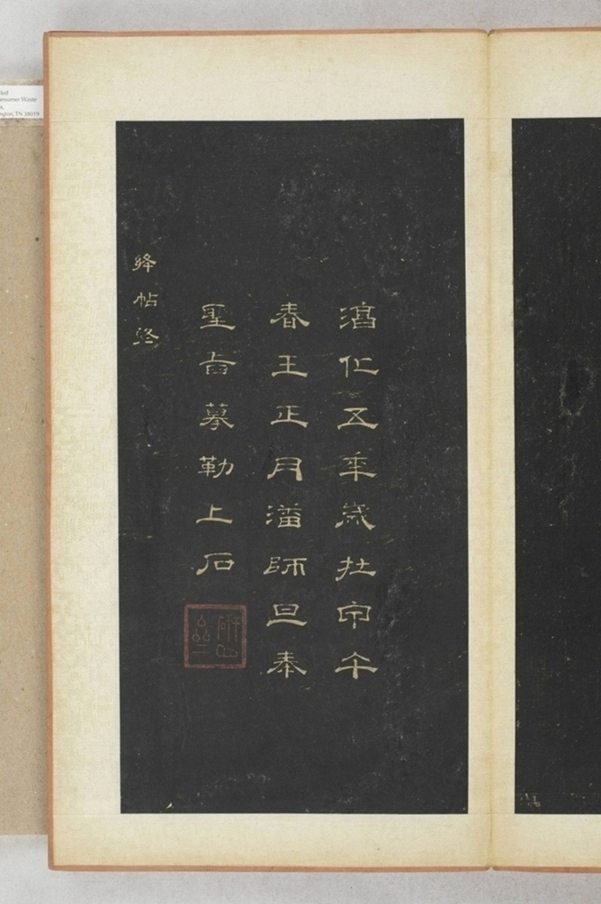 淳化五年歲在甲午
春王正月潘師旦奉
聖旨摹勒上石
絳帖終
onsumer Waste
ngton, TN 38059